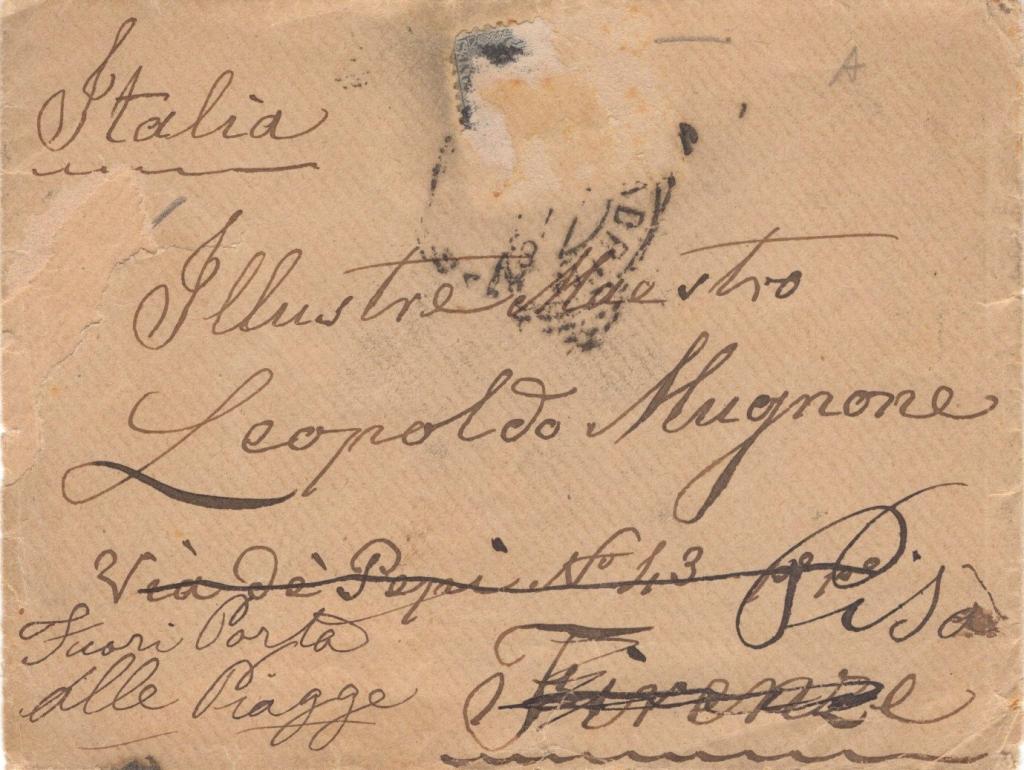 A
Italia
Illustre Maestro
Leopoldo Mugnone
Via dè Pepi Nº 43 pº pº
Pisa
Fuori Porta
alle Piagge
Firenze